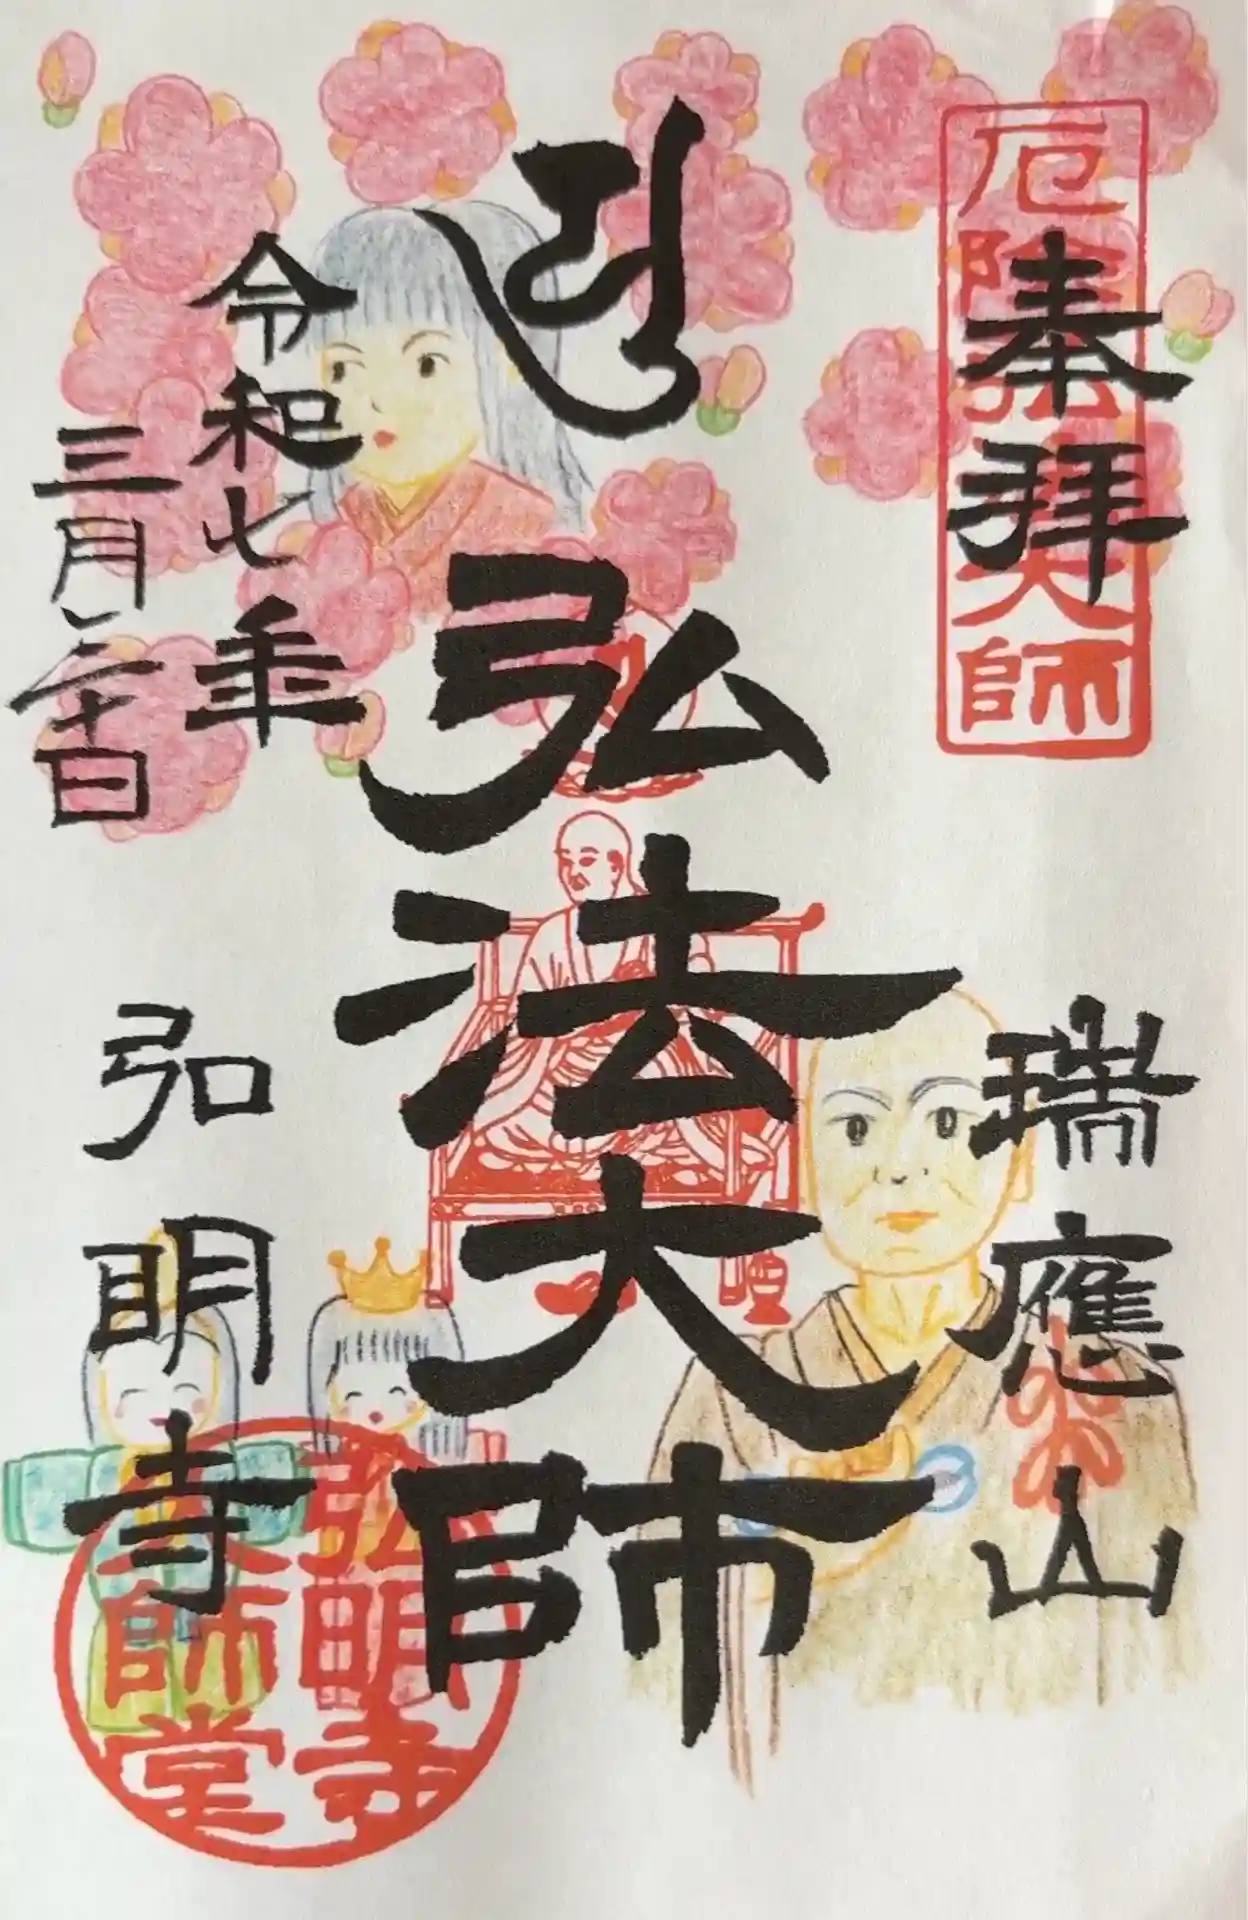 厄除弘法大師
奉拝
瑞應山
弘法大師
令和七年
三月二十日
弘明寺
弘明寺
大師堂